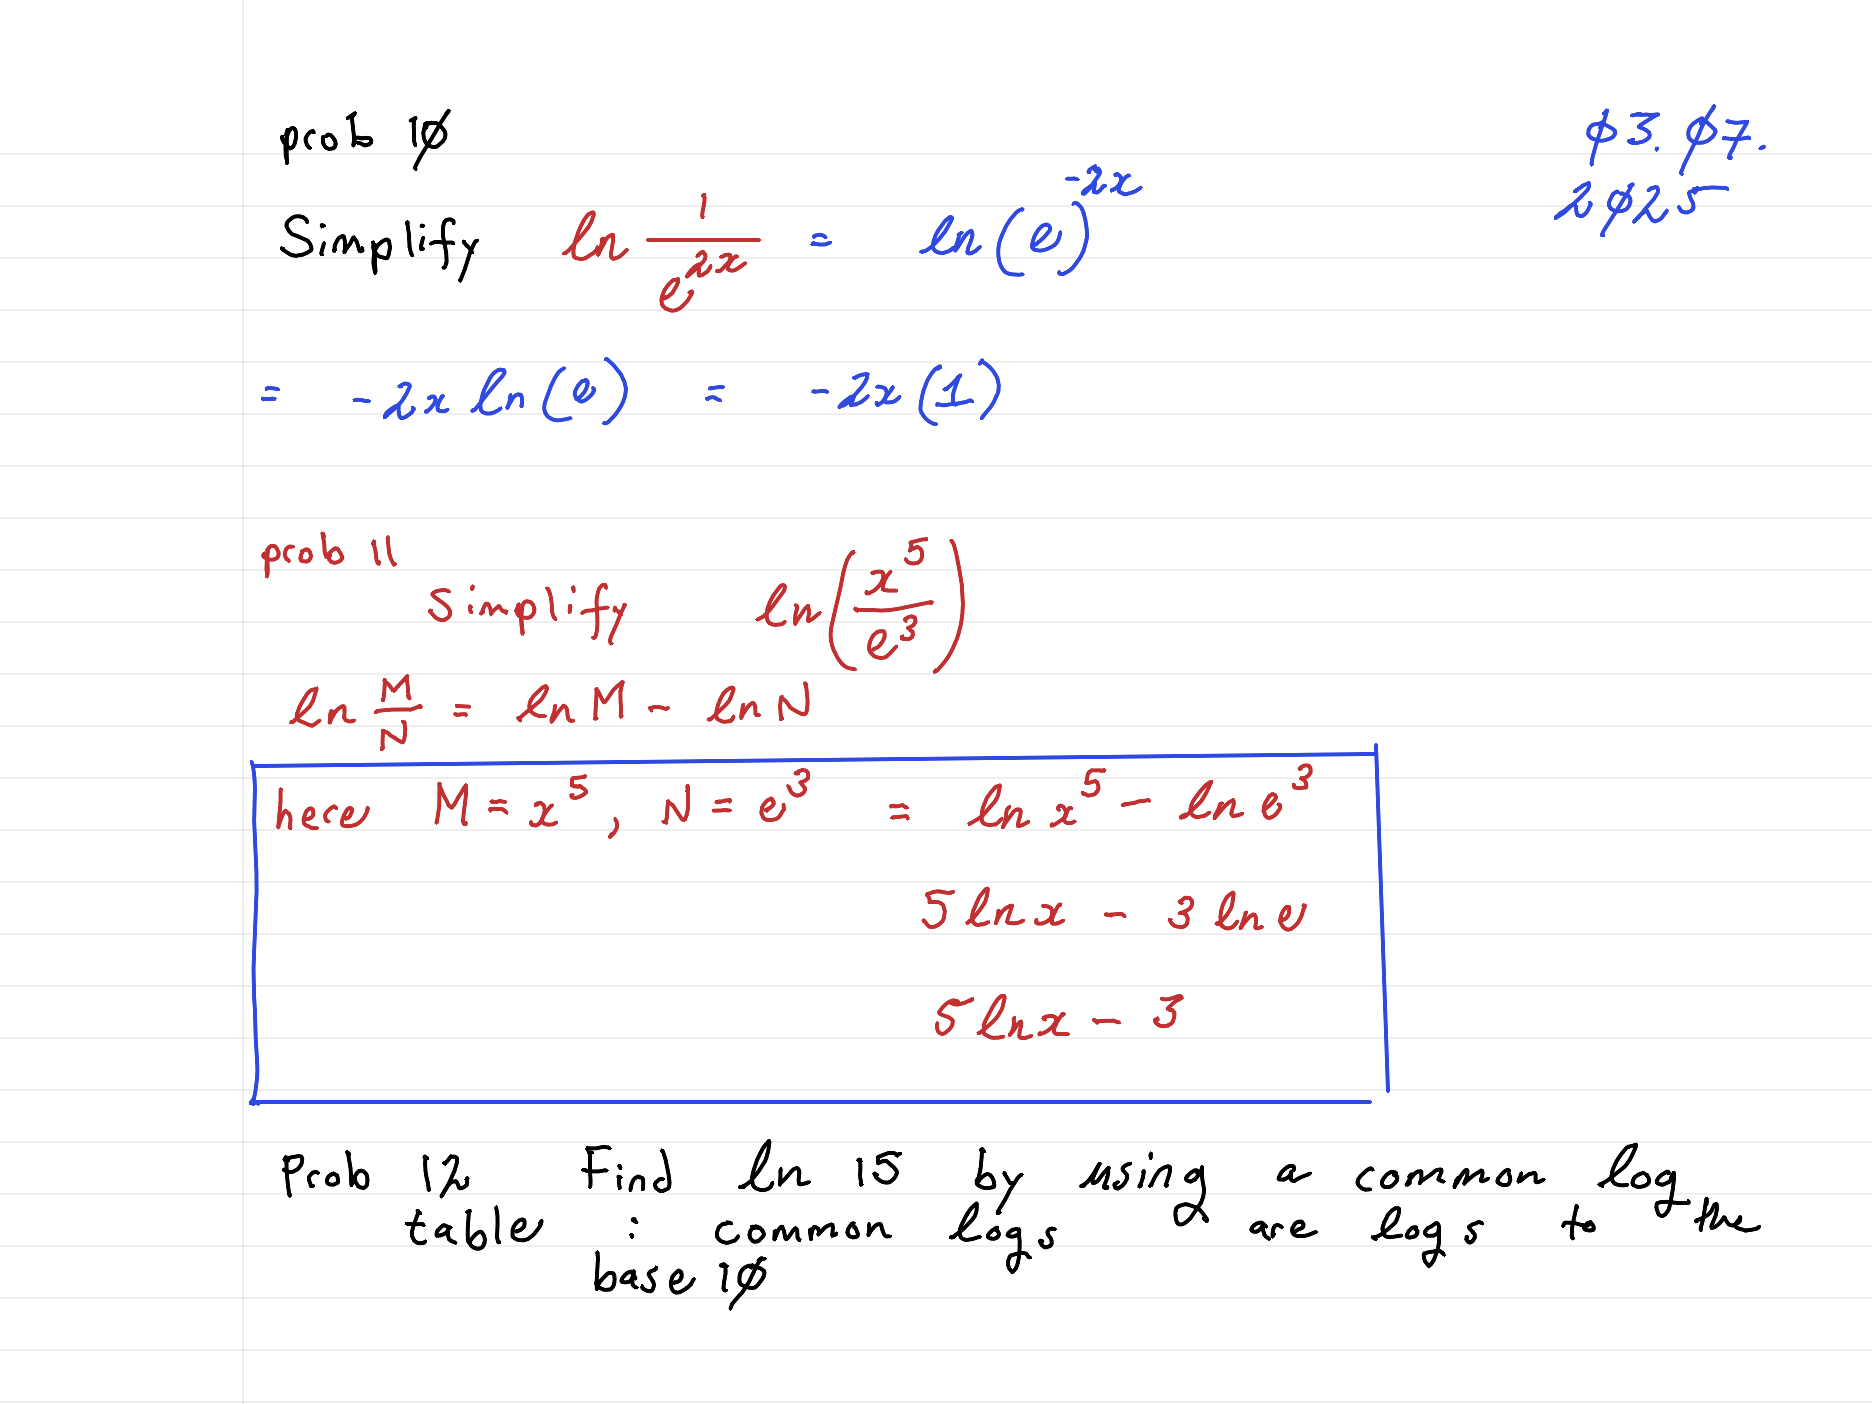 prob 1∅
∅3. ∅7.
2∅25
Simplify ln 1/e^2x = ln(e)^-2x
= -2x ln(e) = -2x(1)
prob 11
Simplify ln(x^5/e^3)
ln M/N = ln M - ln N
here M = x^5, N = e^3 = ln x^5 - ln e^3
5 ln x - 3 ln e
5 ln x - 3
Prob 12 Find ln 15 by using a common log
table : common logs are logs to the
base 1∅